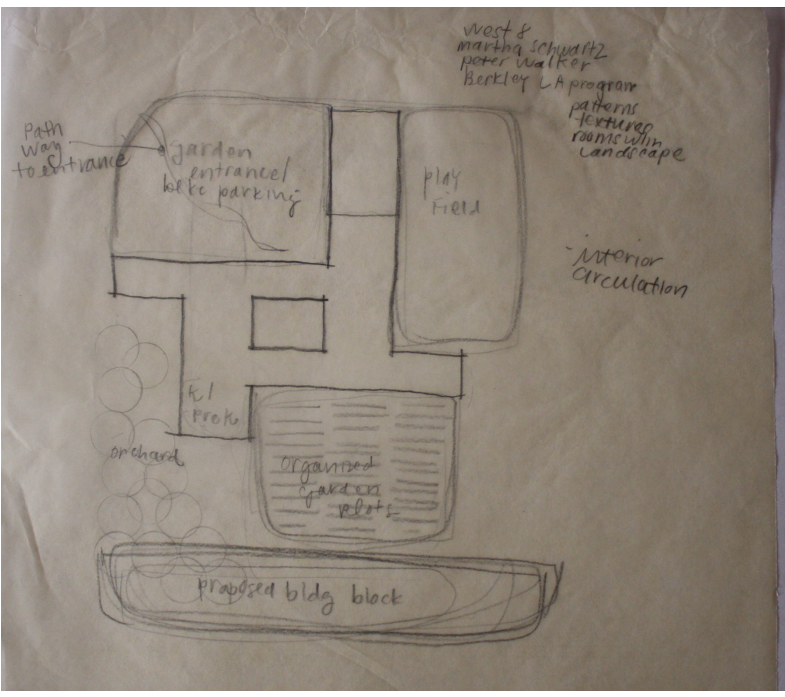 west 8
martha schwartz
peter walker
Berkley LA program
patterns
textures
rooms w/in
landscape
path
way
to entrance
garden
entrance/
bike parking
play
field
-interior
circulation
K/
prek
orchard
organized
garden
plots
proposed bldg block